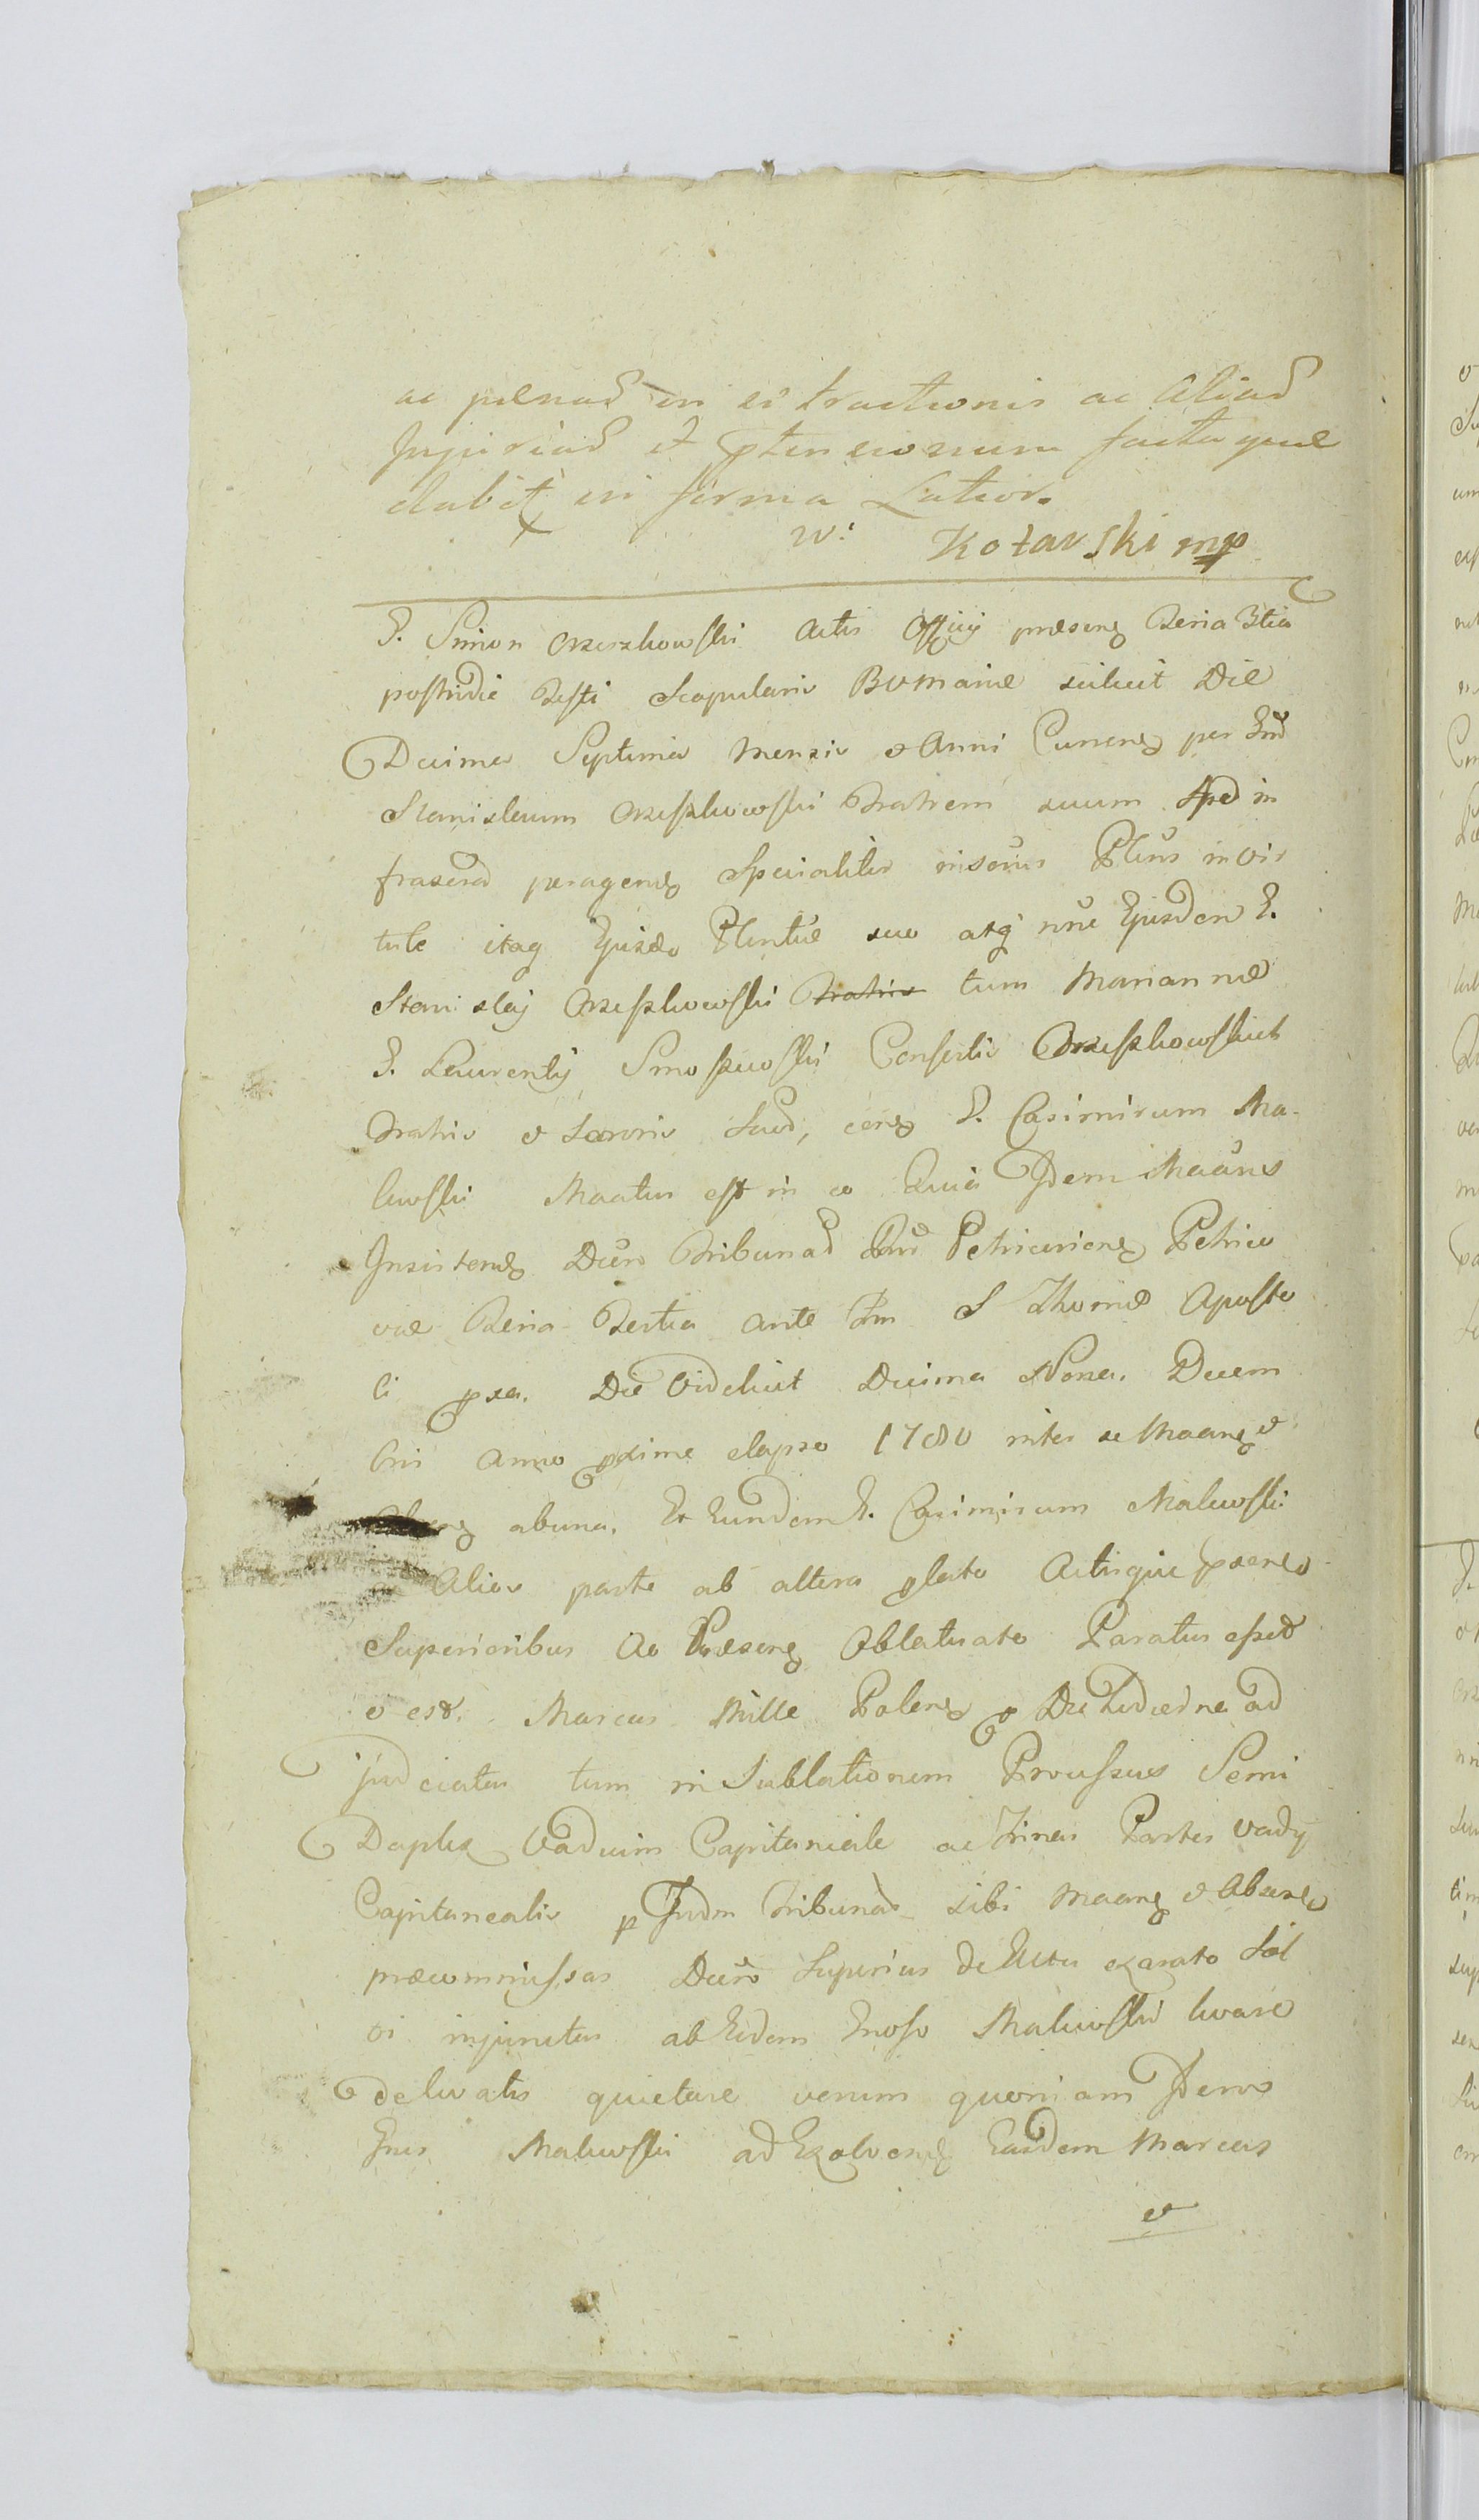 ac pænas in extractionis ac alias
Injurias et ptensionum factaque
dabit in forma Latior.
W. Kotarski mp
G. Simon Orzeszkowski Actis Offici præsen Feria 3tia
postridie Festi Scapularis BVMariæ scilicet Die
Decima Septima Mensis et Anni Curren per Gnd
Stanislaum Orzeszkowski Fratrem suum Ad in
frascrad peragen Specialiter inscrius Pltus in vir
tute itaq Ejusdo Pltntiæ suo atq nne Ejusdem G.
Stanislaj Orzeszkowski Fratris tum Mariannæ
G. Laurentij Smoszewski Consortis Orzeszkowskich
Fratris et Sororis suod, cerg G. Casimirum Ma-
lewski Maatus est in eo Quia Idem Maans
Insisten Decro Tribunad Rni Petricovien Petrico
viæ Feria Tertia ante Fm S Thomæ Aposto
li pxa. Die Videlicet Decima Nona. Decem
bris Anno pxime elapso 1780 inter se Maang et
abuna. Et Eundem G. Casimirum Malewski
Alios parte ab altera plato Actisque psens
Superioribus Ac Præsen Oblatuato Paratus esset
et est. Marcas Mille Polen p Die Hodierna ad
judicatas tum in Sublationem Processus Semi
Duplex Vadium Capitaneale ac Trinas Partes Vadij
Capitanealis p Judm Tribunad sibi Maang et Absens
præcommissas Decro Superius de Actu exarato Sol
vi injunctas ab Eodem Gnoso Malewski levare
delevatis quietare verum quoniam Idem
Gnus Malewski ad Exolvend Easdem Marcas
et